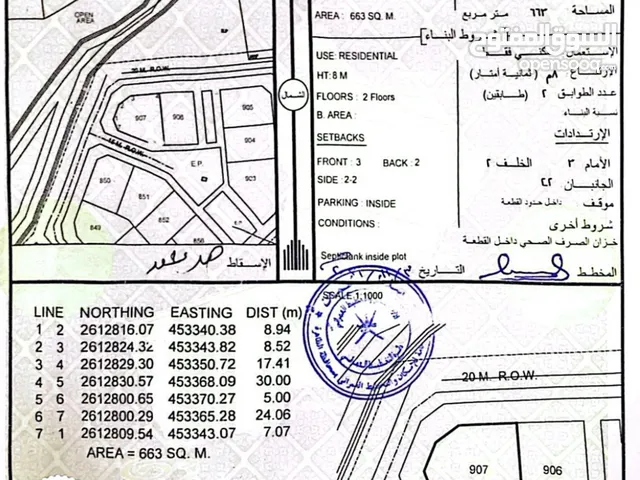 OPEN AREA
20 M. R.O.W.
15 M. R.O.W.
907
906
905
904
903
E.P.
850
851
852
849
856
الإسقاط
الشمال
AREA : 663 SQ. M.
المساحة ٦٦٣ متر مربع
شروط البناء
السوق المفتوح
opensooq
USE: RESIDENTIAL
الاستعمال سكني فقط
HT: 8 M
الارتفاع ٨م (ثمانية أمتار)
FLOORS : 2 Floors
عدد الطوابق ٢ (طابقين)
B. AREA :
نسبة البناء
SETBACKS
الإرتدادات
FRONT : 3 BACK : 2
الأمام ٣ الخلف ٢
SIDE : 2-2
الجانبان ٢-٢
PARKING : INSIDE
موقف داخل حدود القطعة
CONDITIONS :
شروط أخرى
Septic tank inside plot
خزان الصرف الصحي داخل القطعة
المخطط
التاريخ
SCALE 1:1000
LINE NORTHING EASTING DIST (m)
1 2 2612816.07 453340.38 8.94
2 3 2612824.32 453343.82 8.52
3 4 2612829.30 453350.72 17.41
4 5 2612830.57 453368.09 30.00
5 6 2612800.65 453370.27 5.00
6 7 2612800.29 453365.28 24.06
7 1 2612809.54 453343.07 7.07
AREA = 663 SQ. M.
20 M. R.O.W.
907
906